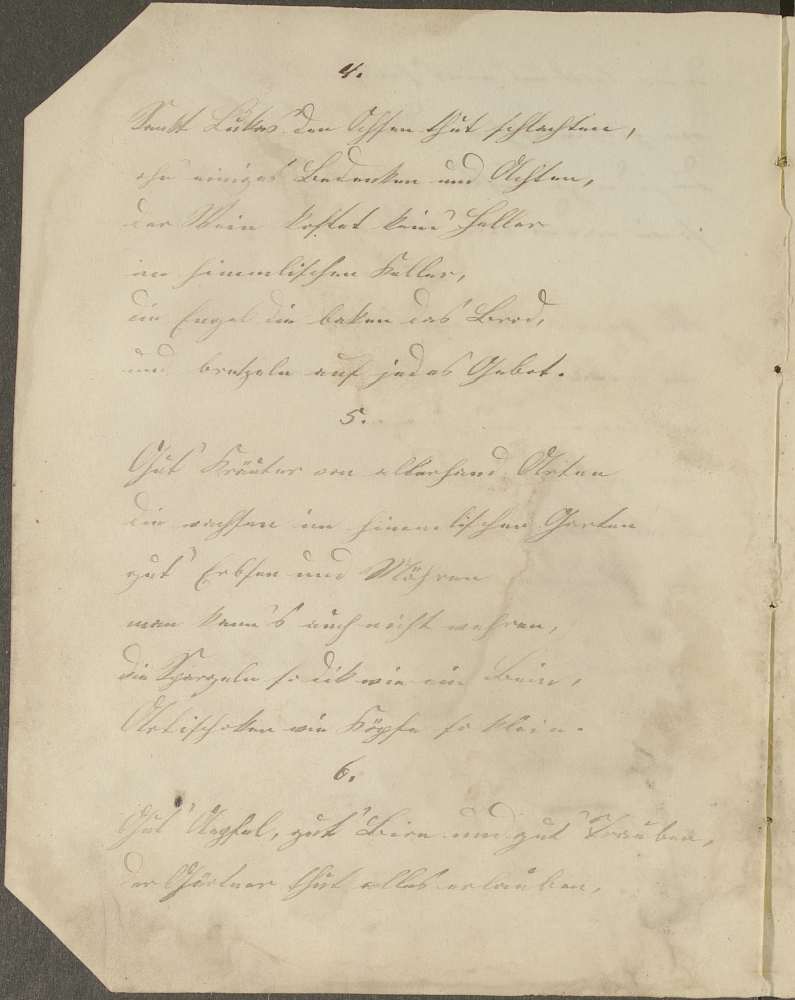 4.
Sankt Lukas den Ochsen thut schlachten,
ohn' einiges Bedenken und Achten,
der Wein kostet kein' Heller
im himmlischen Keller,
die Engel die baken das Brod,
und bretzeln auf jedes Gebot.
5.
Gut' Kräuter von allerhand Arten
die wachsen im himmlischen Garten
gut' Erbsen und Möhren
man kann's auch nicht wehren,
die Spargeln so dik wie ein Bein,
Artischoken wie Köpfe so klein.
6.
Gut' Aepfel, gut' Birn und gut' Trauben,
der Gärtner thut alles erlauben,